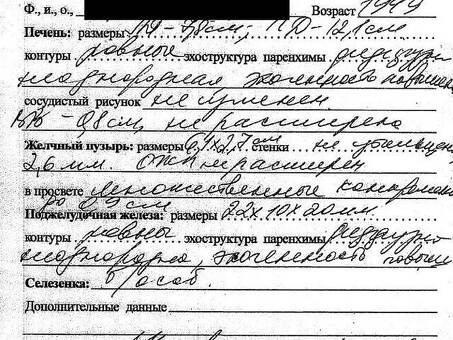 Ф., и., о., Возраст 1949
Печень: размеры ЛД - 7,8см; ПД - 12,1см
контуры ровные эхоструктура паренхимы диффузно
неоднородная, эхогенность повышена
сосудистый рисунок не изменен
ВВ - 0,8см, не расширена
Желчный пузырь: размеры 6,1х2,7см стенки не утолщены
2,6 мм. ОЖП не расширен
в просвете множественные конкременты
до 0,9см
Поджелудочная железа: размеры 22х10х20мм
контуры ровны эхоструктура паренхимы диффузно
неоднородна, эхогенность повыш
Селезенка: б/особ.
Дополнительные данные